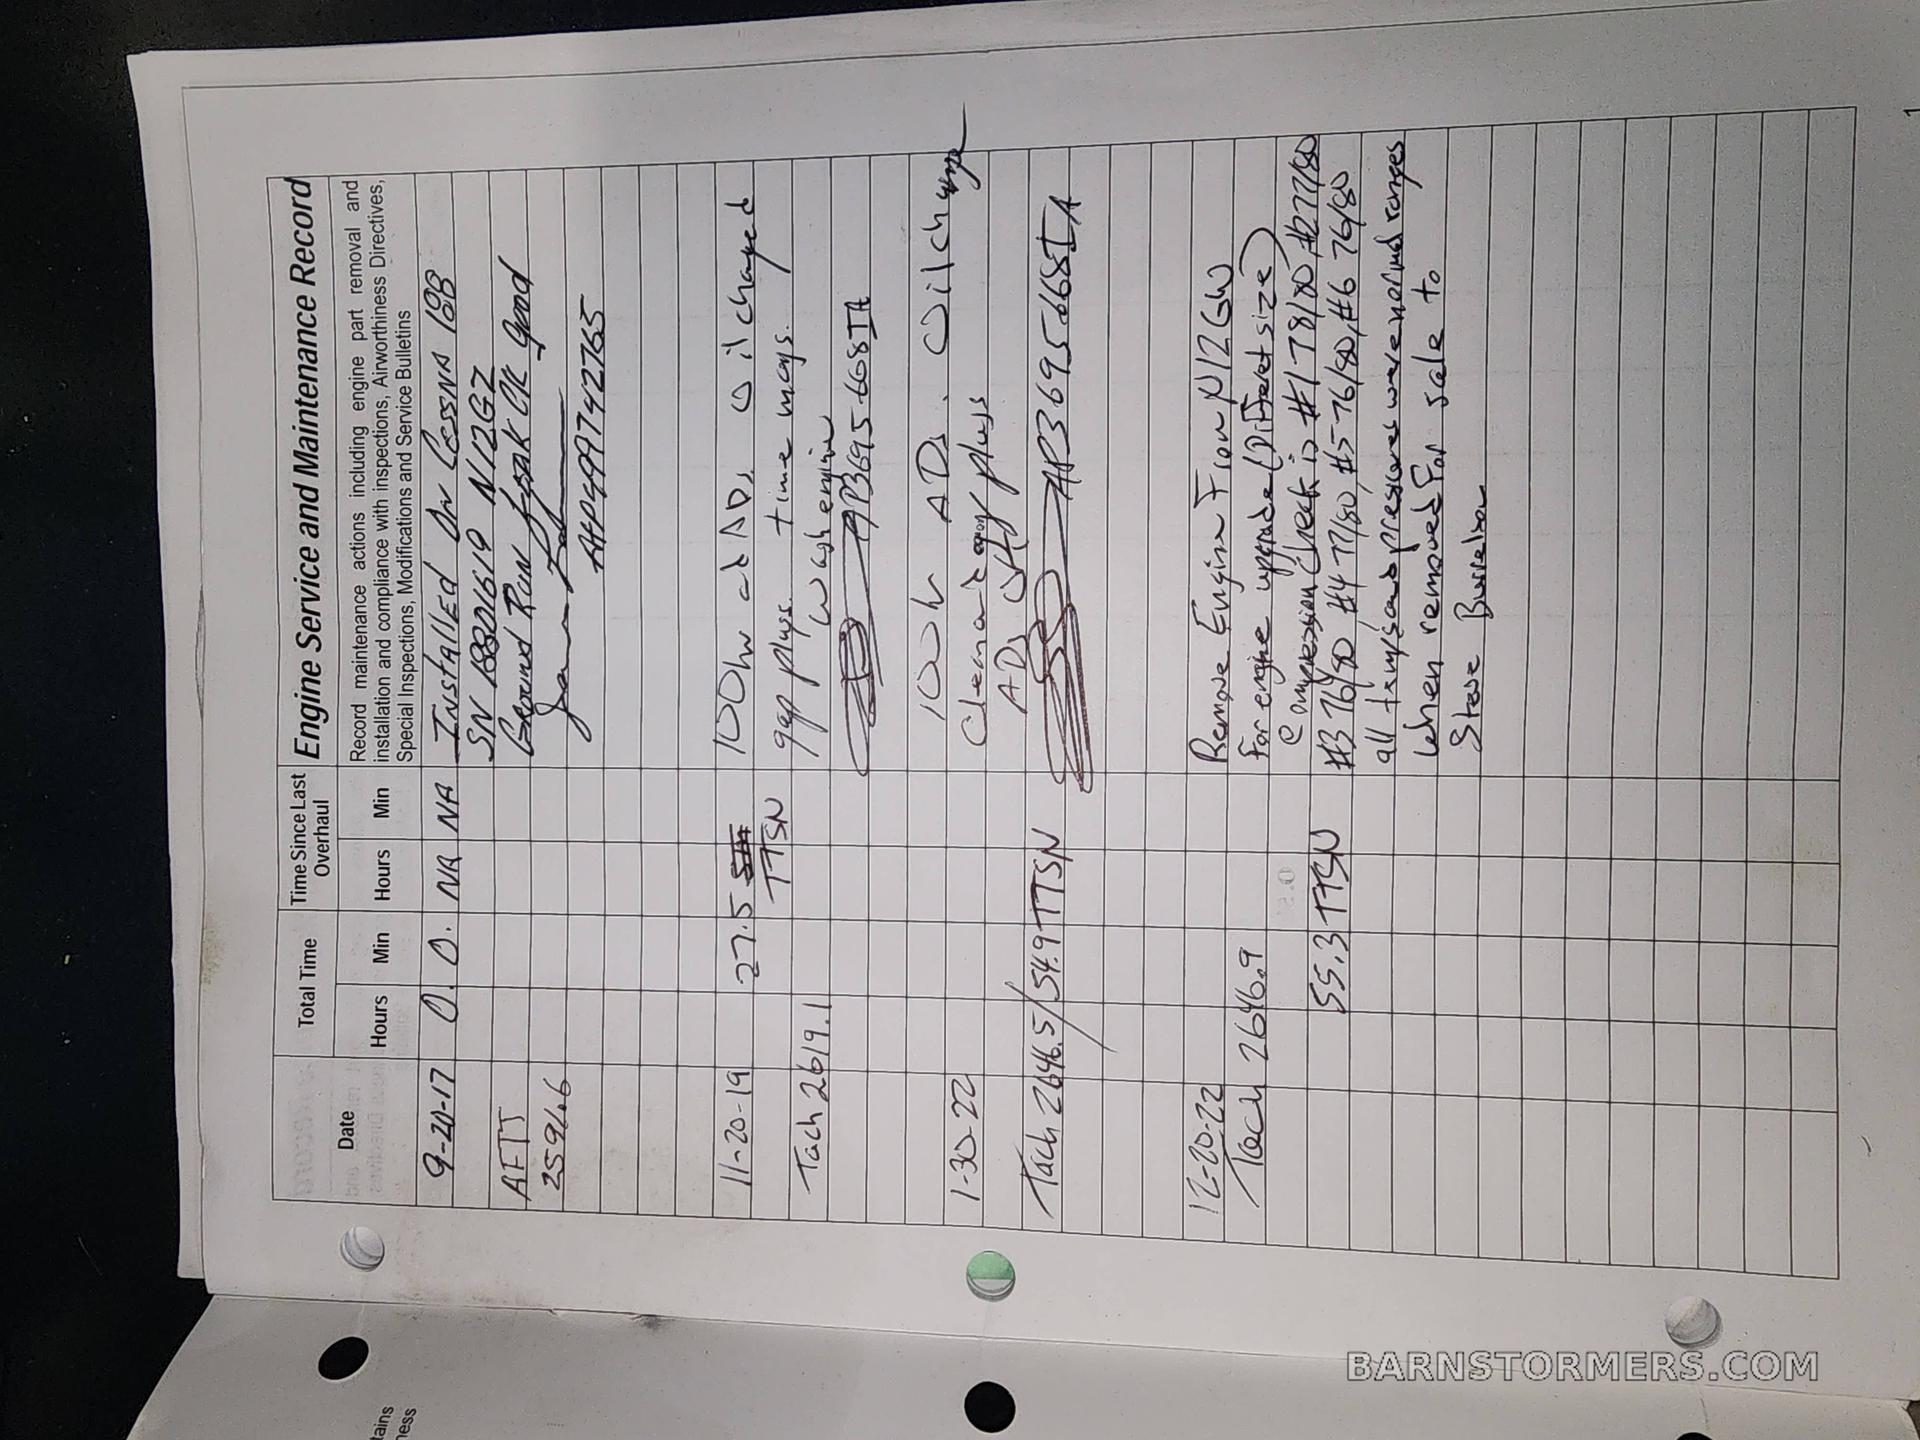 Engine Service and Maintenance Record
Date
Total Time
Hours Min
Time Since Last Overhaul
Hours Min
Record maintenance actions including engine part removal and
installation and compliance with inspections, Airworthiness Directives,
Special Inspections, Modifications and Service Bulletins
9-20-17 0. 0. NA NA Installed On Cessna 188B
SN 18801619 N12GZ
AFTT Ground Run Leak CK good
2591.6
A+P 499742765
11-20-19 27.5 TTSN 100hr ad ADs Oil changed
Tach 2619.1 gap plugs. time mags.
Wash engine
AP3695668IA
1-30-22 100hr ADs. Oil change
Clean and gap plugs
ADs
Tach 2646.5/54.9 TTSN AP3695668IA
12-20-22 Remove Engine From N12GW
Tach 2646.9 For engine upgrade (Different size)
Compression Check is #1 78/80, #2 77/80
55.3 TTSN #3 76/80 #4 77/80, #5-76/80, #6 76/80
all temps and pressures were normal ranges
When removed For sale to
Steve
tains
ness
BARNSTORMERS.COM